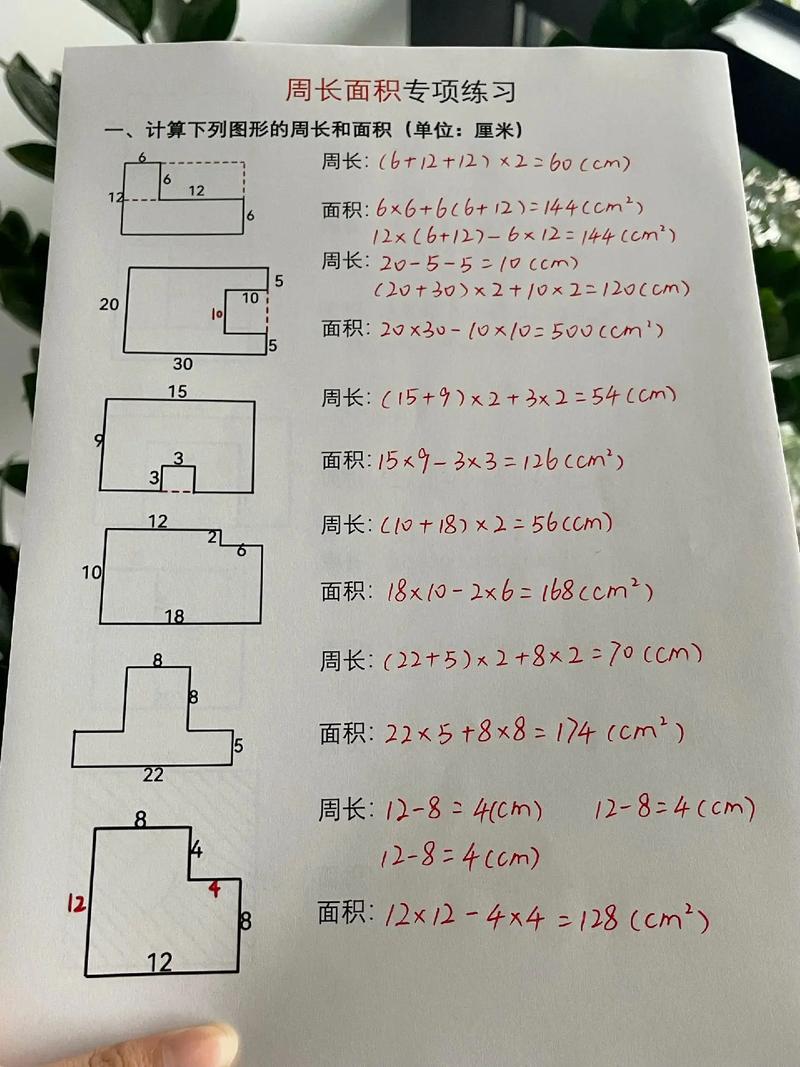 周长面积专项练习
一、计算下列图形的周长和面积（单位：厘米）
6
6
12
12
6
周长：(6+12+12)×2=60(cm)
面积：6×6+6(6+12)=144(cm²)
12×(6+12)-6×12=144(cm²)
20
5
10
10
5
30
周长：20-5-5=10(cm)
(20+30)×2+10×2=120(cm)
面积：20×30-10×10=500(cm²)
15
9
3
3
周长：(15+9)×2+3×2=54(cm)
面积：15×9-3×3=126(cm²)
12
2
6
10
18
周长：(10+18)×2=56(cm)
面积：18×10-2×6=168(cm²)
8
8
5
22
周长：(22+5)×2+8×2=70(cm)
面积：22×5+8×8=174(cm²)
8
4
4
12
8
12
周长：12-8=4(cm) 12-8=4(cm)
12-8=4(cm)
面积：12×12-4×4=128(cm²)